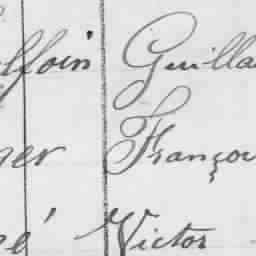 lfoin Guilla
ner Françoi
é Victor